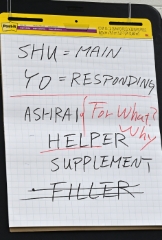 Post-it
SHU = MAIN
YO = RESPONDING
ASHRAI {For What?
Why
HELPER
SUPPLEMENT
FILLER